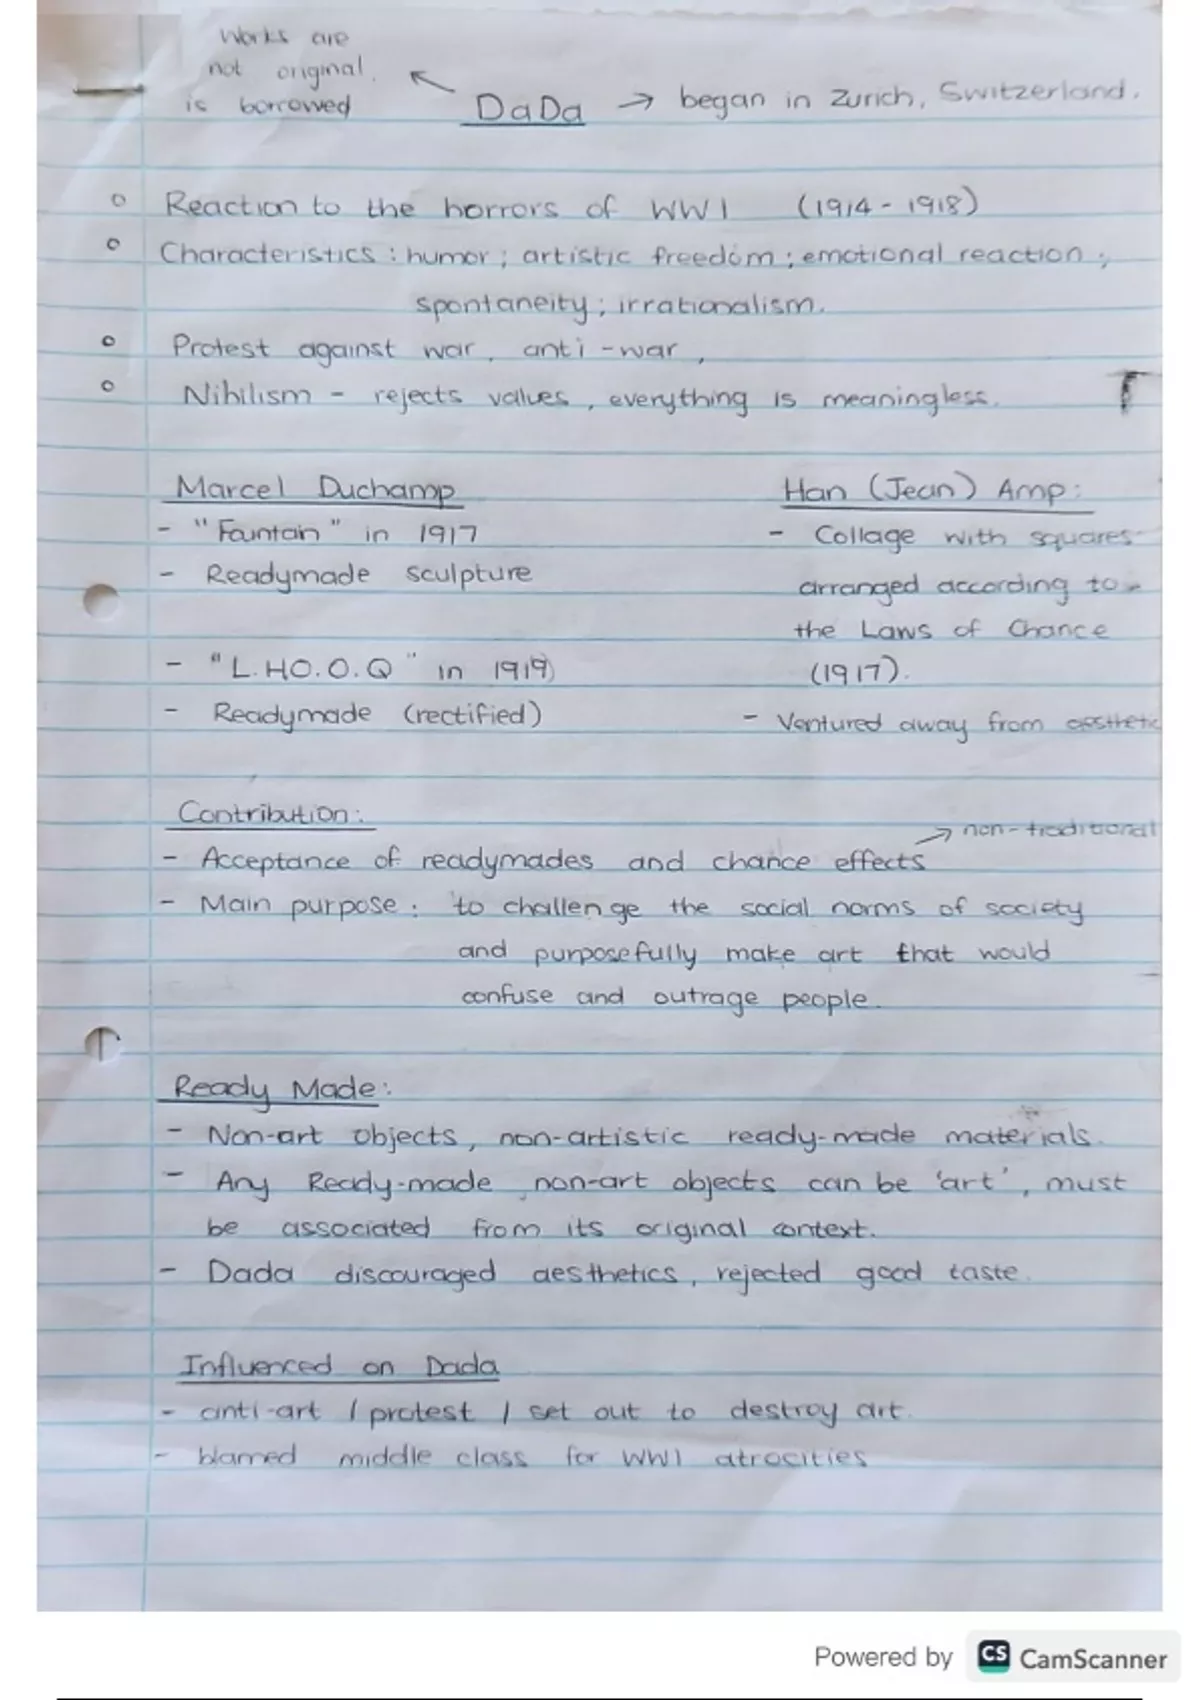 Works are
not original.
is borrowed
DaDa → began in Zurich, Switzerland.
Reaction to the horrors of WW1 (1914 - 1918)
Characteristics : humor ; artistic freedom ; emotional reaction ;
spontaneity ; irrationalism.
Protest against war, anti-war,
Nihilism - rejects values, everything is meaningless.
Marcel Duchamp
- "Fountain" in 1917
- Readymade sculpture
- "L.HO.O.Q" in 1919
- Readymade (rectified)
Han (Jean) Amp:
- Collage with squares
arranged according to
the Laws of Chance
(1917).
- Ventured away from aesthetic
Contribution:
→ non-traditional
- Acceptance of readymades and chance effects
- Main purpose: to challenge the social norms of society
and purposefully make art that would
confuse and outrage people.
Ready Made:
- Non-art objects, non-artistic ready-made materials.
- Any Ready-made, non-art objects can be 'art', must
be associated from its original context.
- Dada discouraged aesthetics, rejected good taste.
Influenced on Dada
- anti-art / protest / set out to destroy art.
- blamed middle class for WW1 atrocities
Powered by CS CamScanner